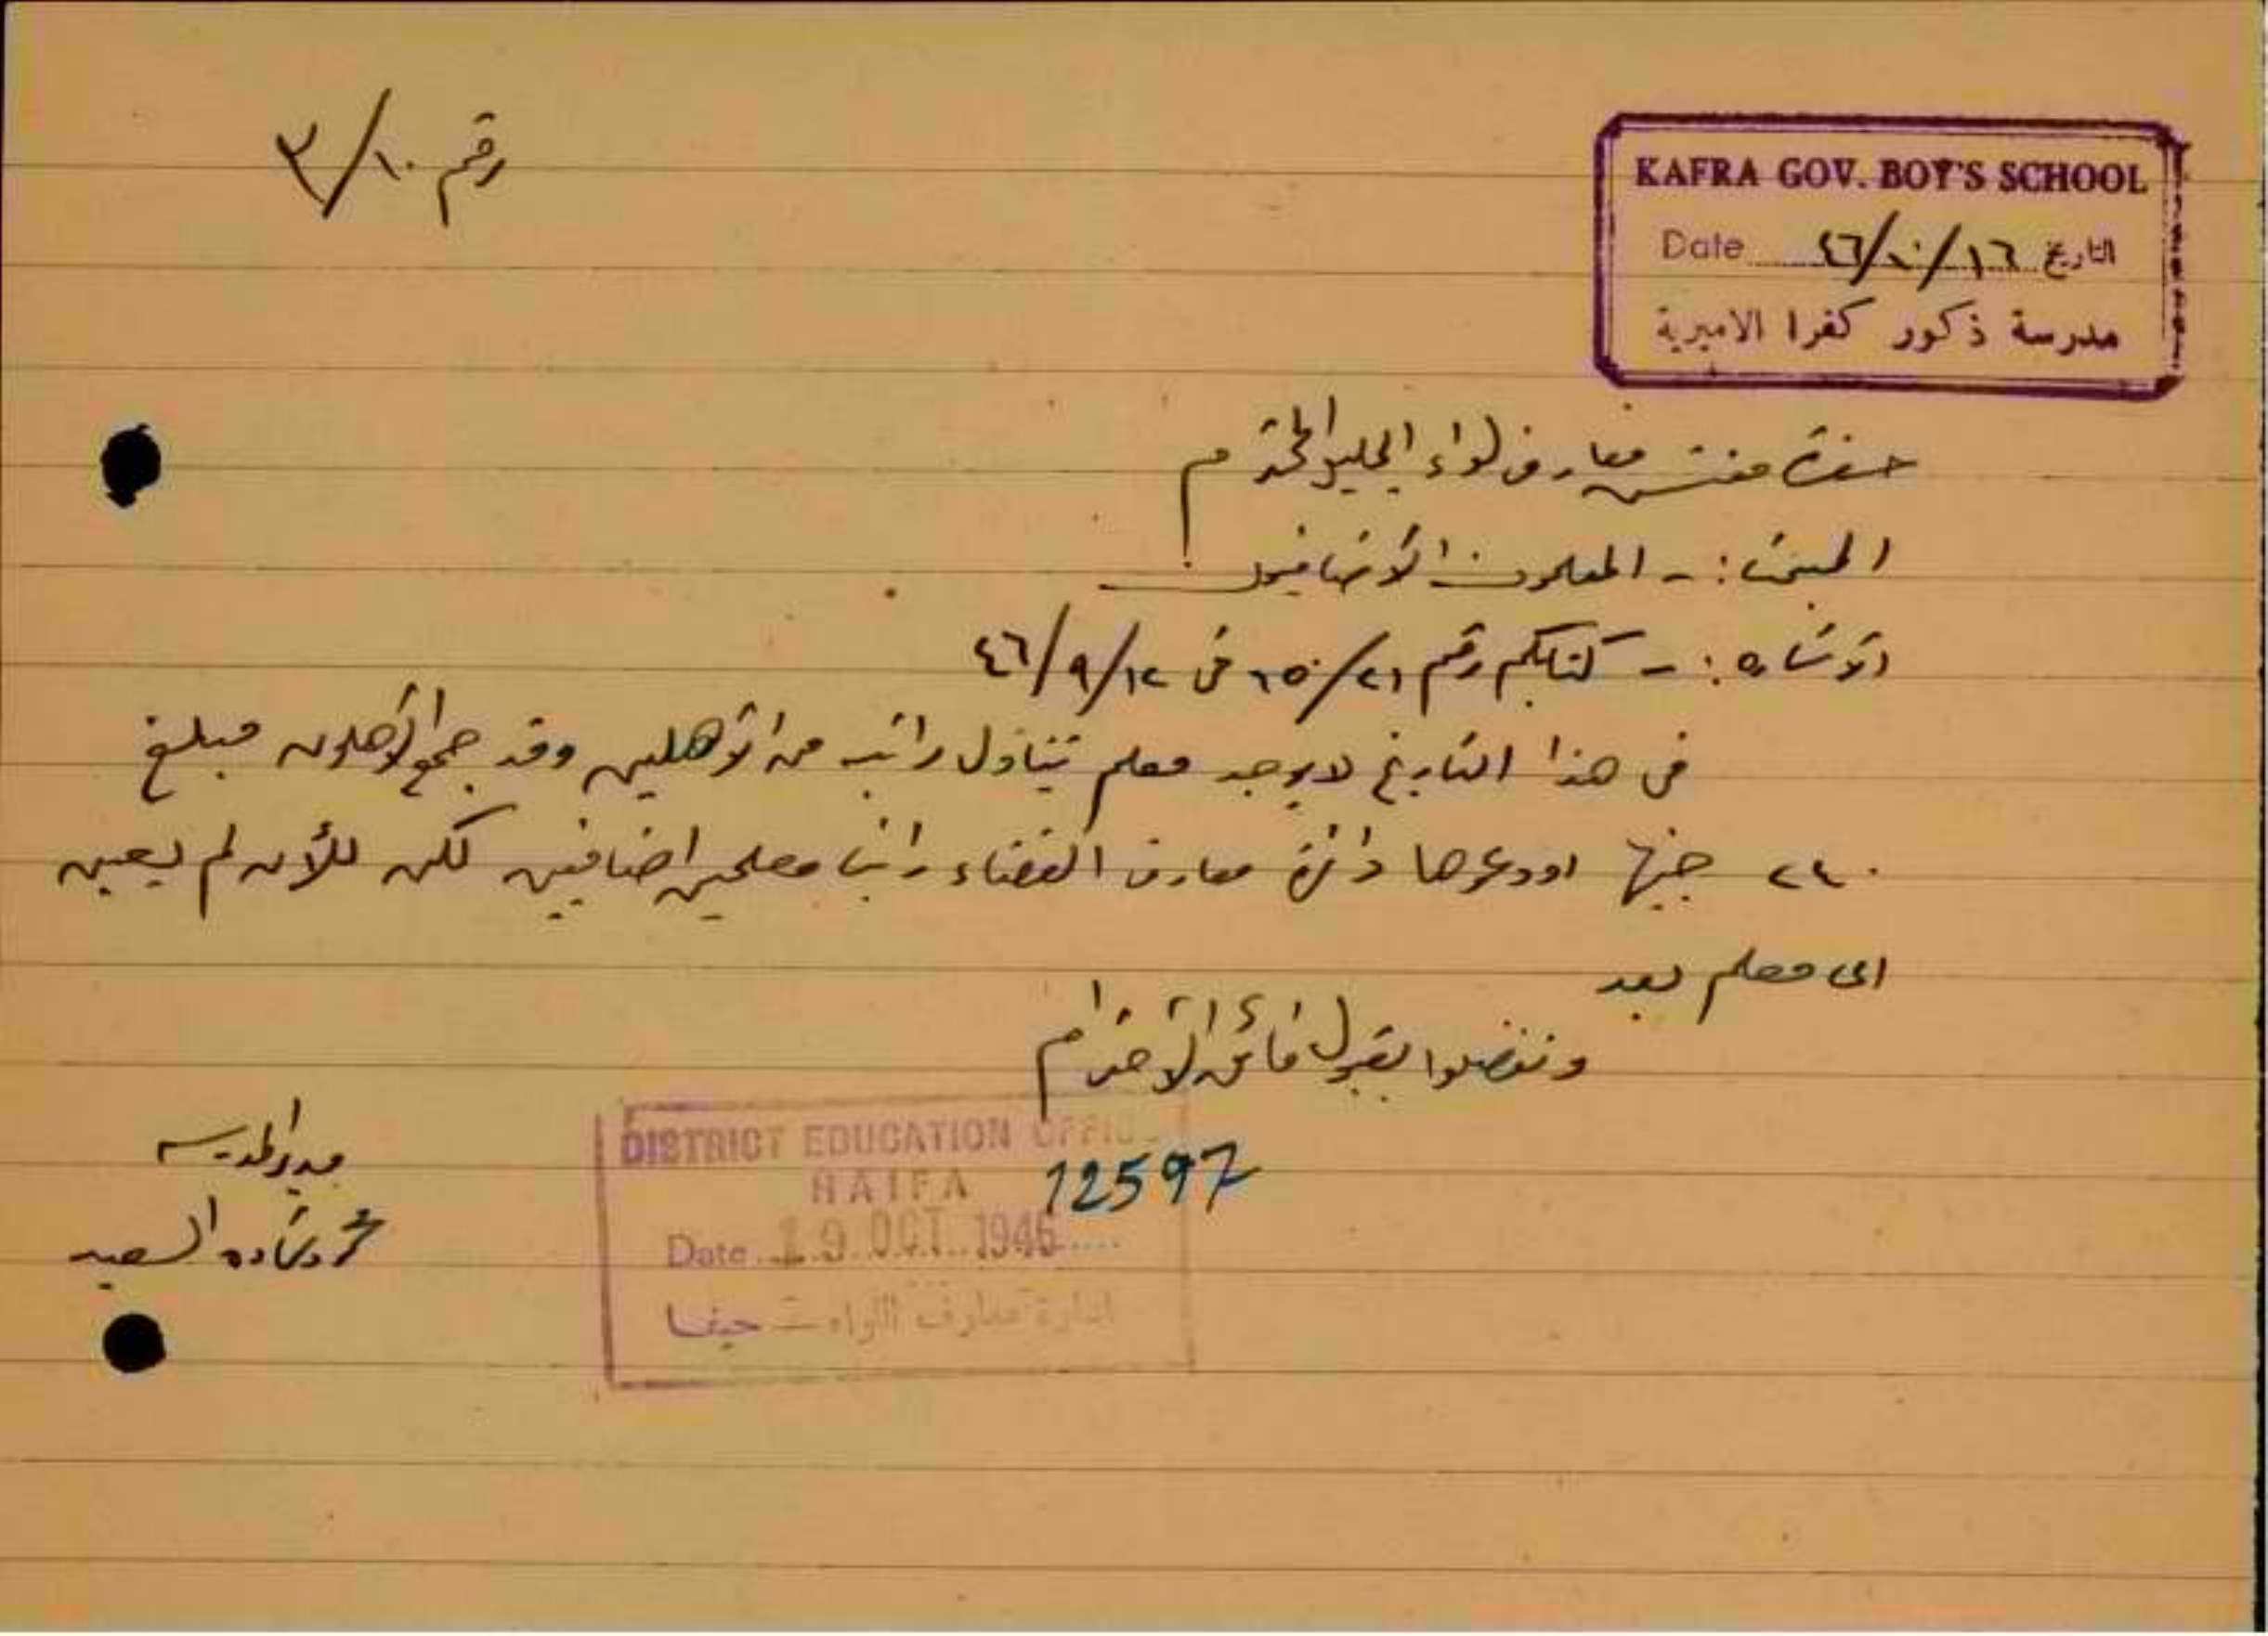 رقم ٣/١٠
KAFRA GOV. BOY'S SCHOOL
Date ٤٦/١٠/١٦ التاريخ
مدرسة ذكور كفرا الاميرية
حضرة مفتش معارف لواء الجليل المحترم
المبحث :- المعلمون الاضافيون
الاشاره :- كتابكم رقم ٦٥٠/٢١ في ٤٦/٩/١٢
في هذا التاريخ لا يوجد معلم يتناول راتبه من الأهلين وقد جمع الأهلون مبلغ
٢٤٠ جنيها اودعوها دائرة معارف القضاء راتب معلمين اضافيين لكن للأن لم يعين
اى معلم بعد
وتفضلوا بقبول فائق الاحترام
مدير المدرسه
السعيد
DISTRICT EDUCATION OFFICE
HAIFA
12597
Date 19 OCT 1946
ادارة معارف اللواء - حيفا